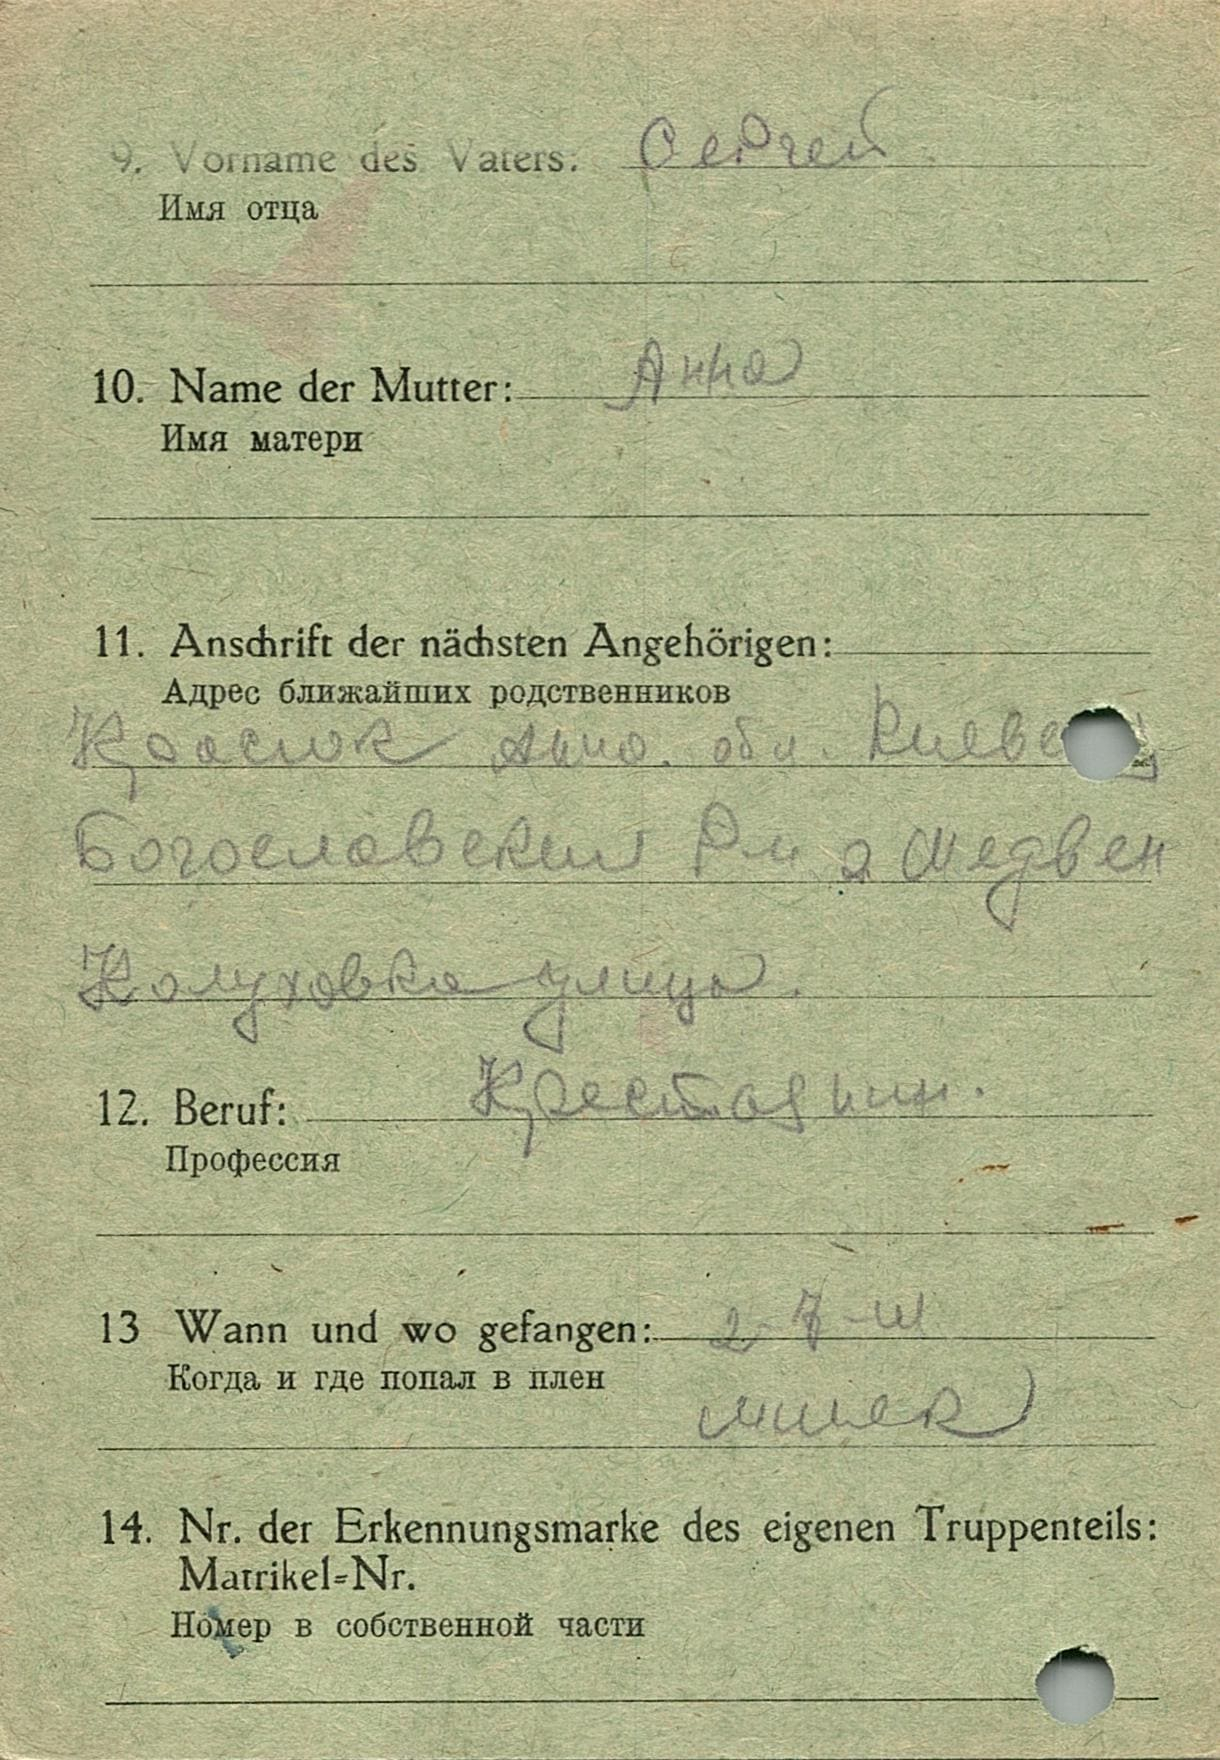 9. Vorname des Vaters: Сергей
Имя отца
10. Name der Mutter: Анна
Имя матери
11. Anschrift der nächsten Angehörigen:
Адрес ближайших родственников
Анна. обл. Киевс
Богославский Рн с Медвен
улица.
12. Beruf: Крестоянин.
Профессия
13 Wann und wo gefangen: 2-7-41
Когда и где попал в плен
минск
14. Nr. der Erkennungsmarke des eigenen Truppenteils:
Matrikel-Nr.
Номер в собственной части